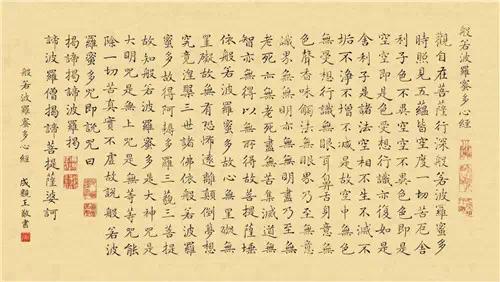 般若波羅蜜多心經
觀自在菩薩行深般若波羅蜜多
時照見五蘊皆空度一切苦厄舍
利子色不異空空不異色色即是
空空即是色受想行識亦復如是
舍利子是諸法空相不生不滅不
垢不淨不增不減是故空中無色
無受想行識無眼耳鼻舌身意無
色聲香味觸法無眼界乃至無意
識界無無明亦無無明盡乃至無
老死亦無老死盡無苦集滅道無
智亦無得以無所得故菩提薩埵
依般若波羅蜜多故心無罣礙無
罣礙故無有恐怖遠離顛倒夢想
究竟涅槃三世諸佛依般若波羅
蜜多故得阿耨多羅三藐三菩提
故知般若波羅蜜多是大神咒是
大明咒是無上咒是無等等咒能
除一切苦真實不虛故說般若波
羅蜜多咒即說咒曰
揭諦揭諦波羅揭
諦波羅僧揭諦菩提薩婆訶
般若波羅蜜多心經
成親王敬書